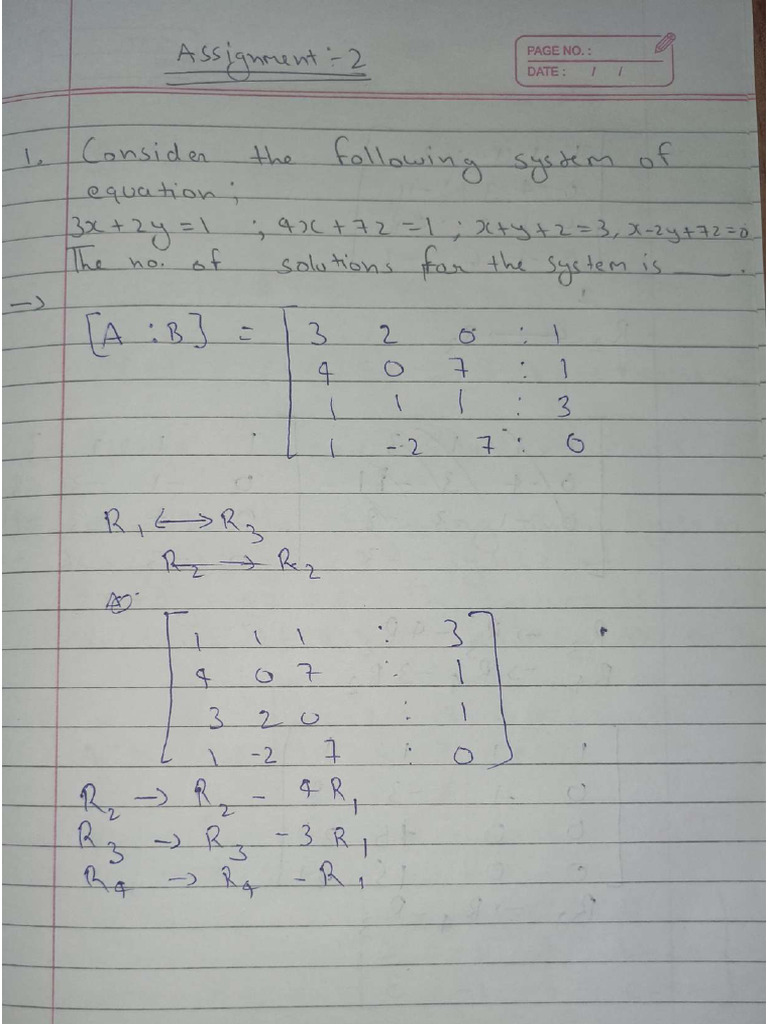 Assignment :- 2
PAGE NO. :
DATE : / /
1. Consider the following system of
equation;
3x + 2y = 1 ; 4x + 7z = 1 ; x+y+z = 3, x-2y+7z=0
The no. of solutions for the system is ____.
→
[A : B] = [ 3 2 0 : 1
4 0 7 : 1
1 1 1 : 3
1 -2 7 : 0
R₁ ↔ R₃
R₂ → R₂
[ 1 1 1 : 3 ]
4 0 7 : 1
3 2 0 : 1
1 -2 7 : 0
R₂ → R₂ - 4R₁
R₃ → R₃ - 3R₁
R₄ → R₄ - R₁